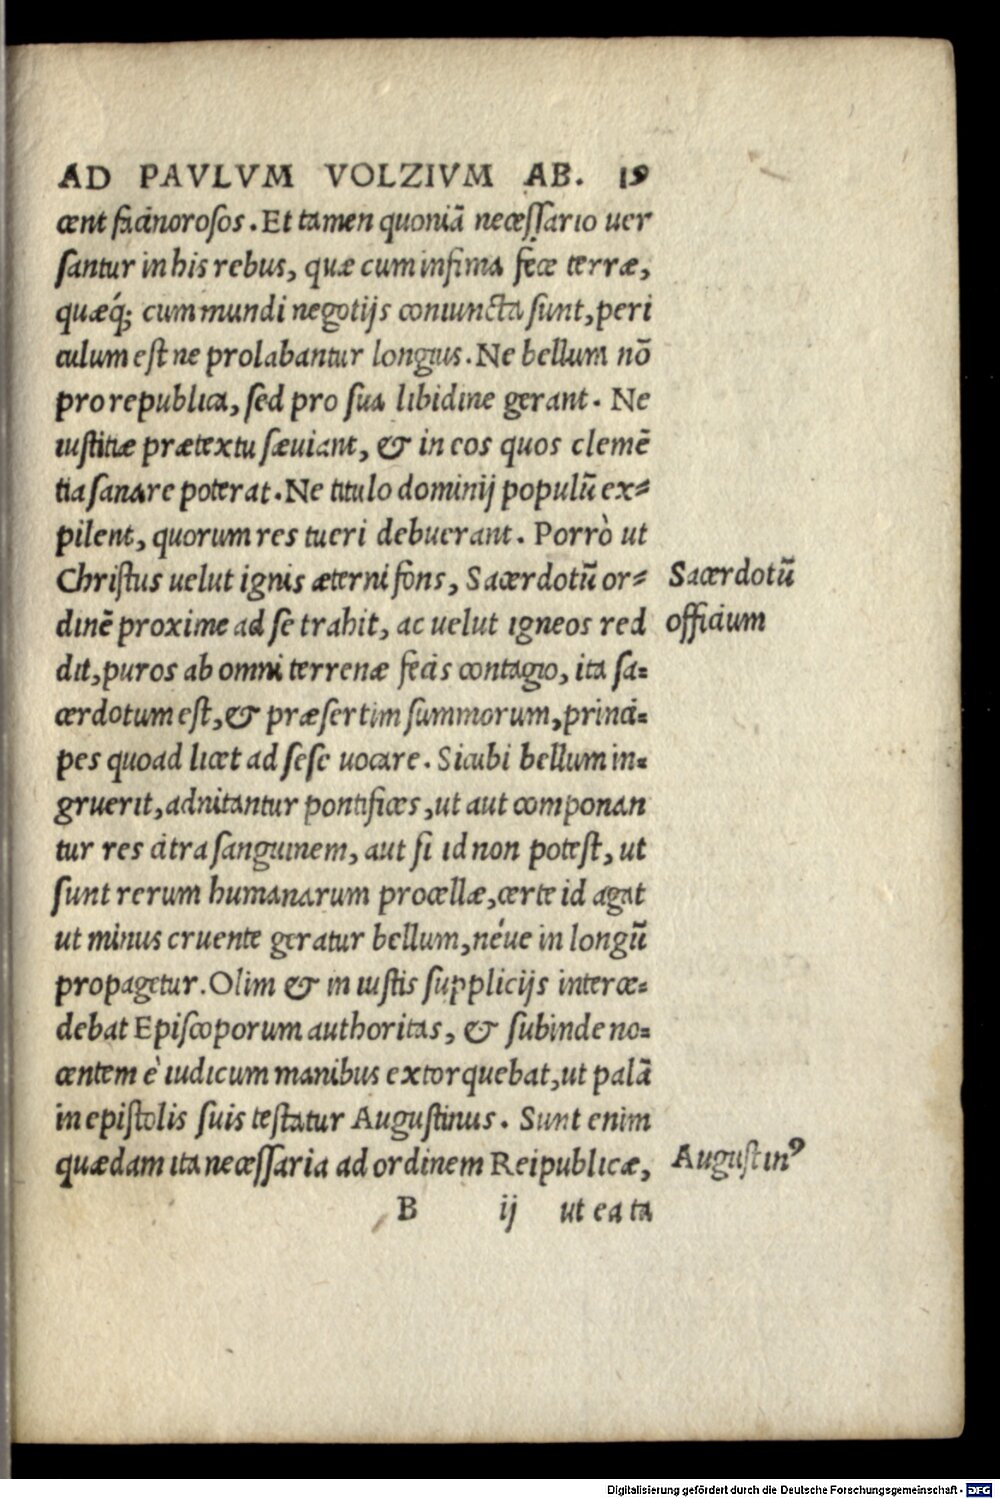 AD PAVLVM VOLZIVM AB. 19
cent facinorosos. Et tamen quoniã necessario uer
santur in his rebus, quæ cum infima fece terræ,
quæq́; cum mundi negotijs coniuncta sunt, peri
culum est ne prolabantur longius. Ne bellum nõ
pro republica, sed pro sua libidine gerant. Ne
iustitiæ prætextu sæuiant, & in eos quos clemẽ
tia sanare poterat. Ne titulo dominij populũ ex-
pilent, quorum res tueri debuerant. Porrò ut
Christus uelut ignis æterni fons, Sacerdotũ or-
dinẽ proxime ad se trahit, ac uelut igneos red
dit, puros ab omni terrenæ fecis contagio, ita sa-
cerdotum est, & præsertim summorum, princi-
pes quoad licet ad sese uocare. Sicubi bellum in-
gruerit, adnitantur pontifices, ut aut componan
tur res citra sanguinem, aut si id non potest, ut
sunt rerum humanarum procellæ, certe id agat
ut minus cruente geratur bellum, néue in longũ
propagetur. Olim & in iustis supplicijs interce-
debat Episcoporum authoritas, & subinde no-
centem è iudicum manibus extorquebat, ut palã
in epistolis suis testatur Augustinus. Sunt enim
quædam ita necessaria ad ordinem Reipublicæ,
B ij ut ea ta
Sacerdotũ
officium
Augustinꝰ
Digitalisierung gefördert durch die Deutsche Forschungsgemeinschaft - DFG